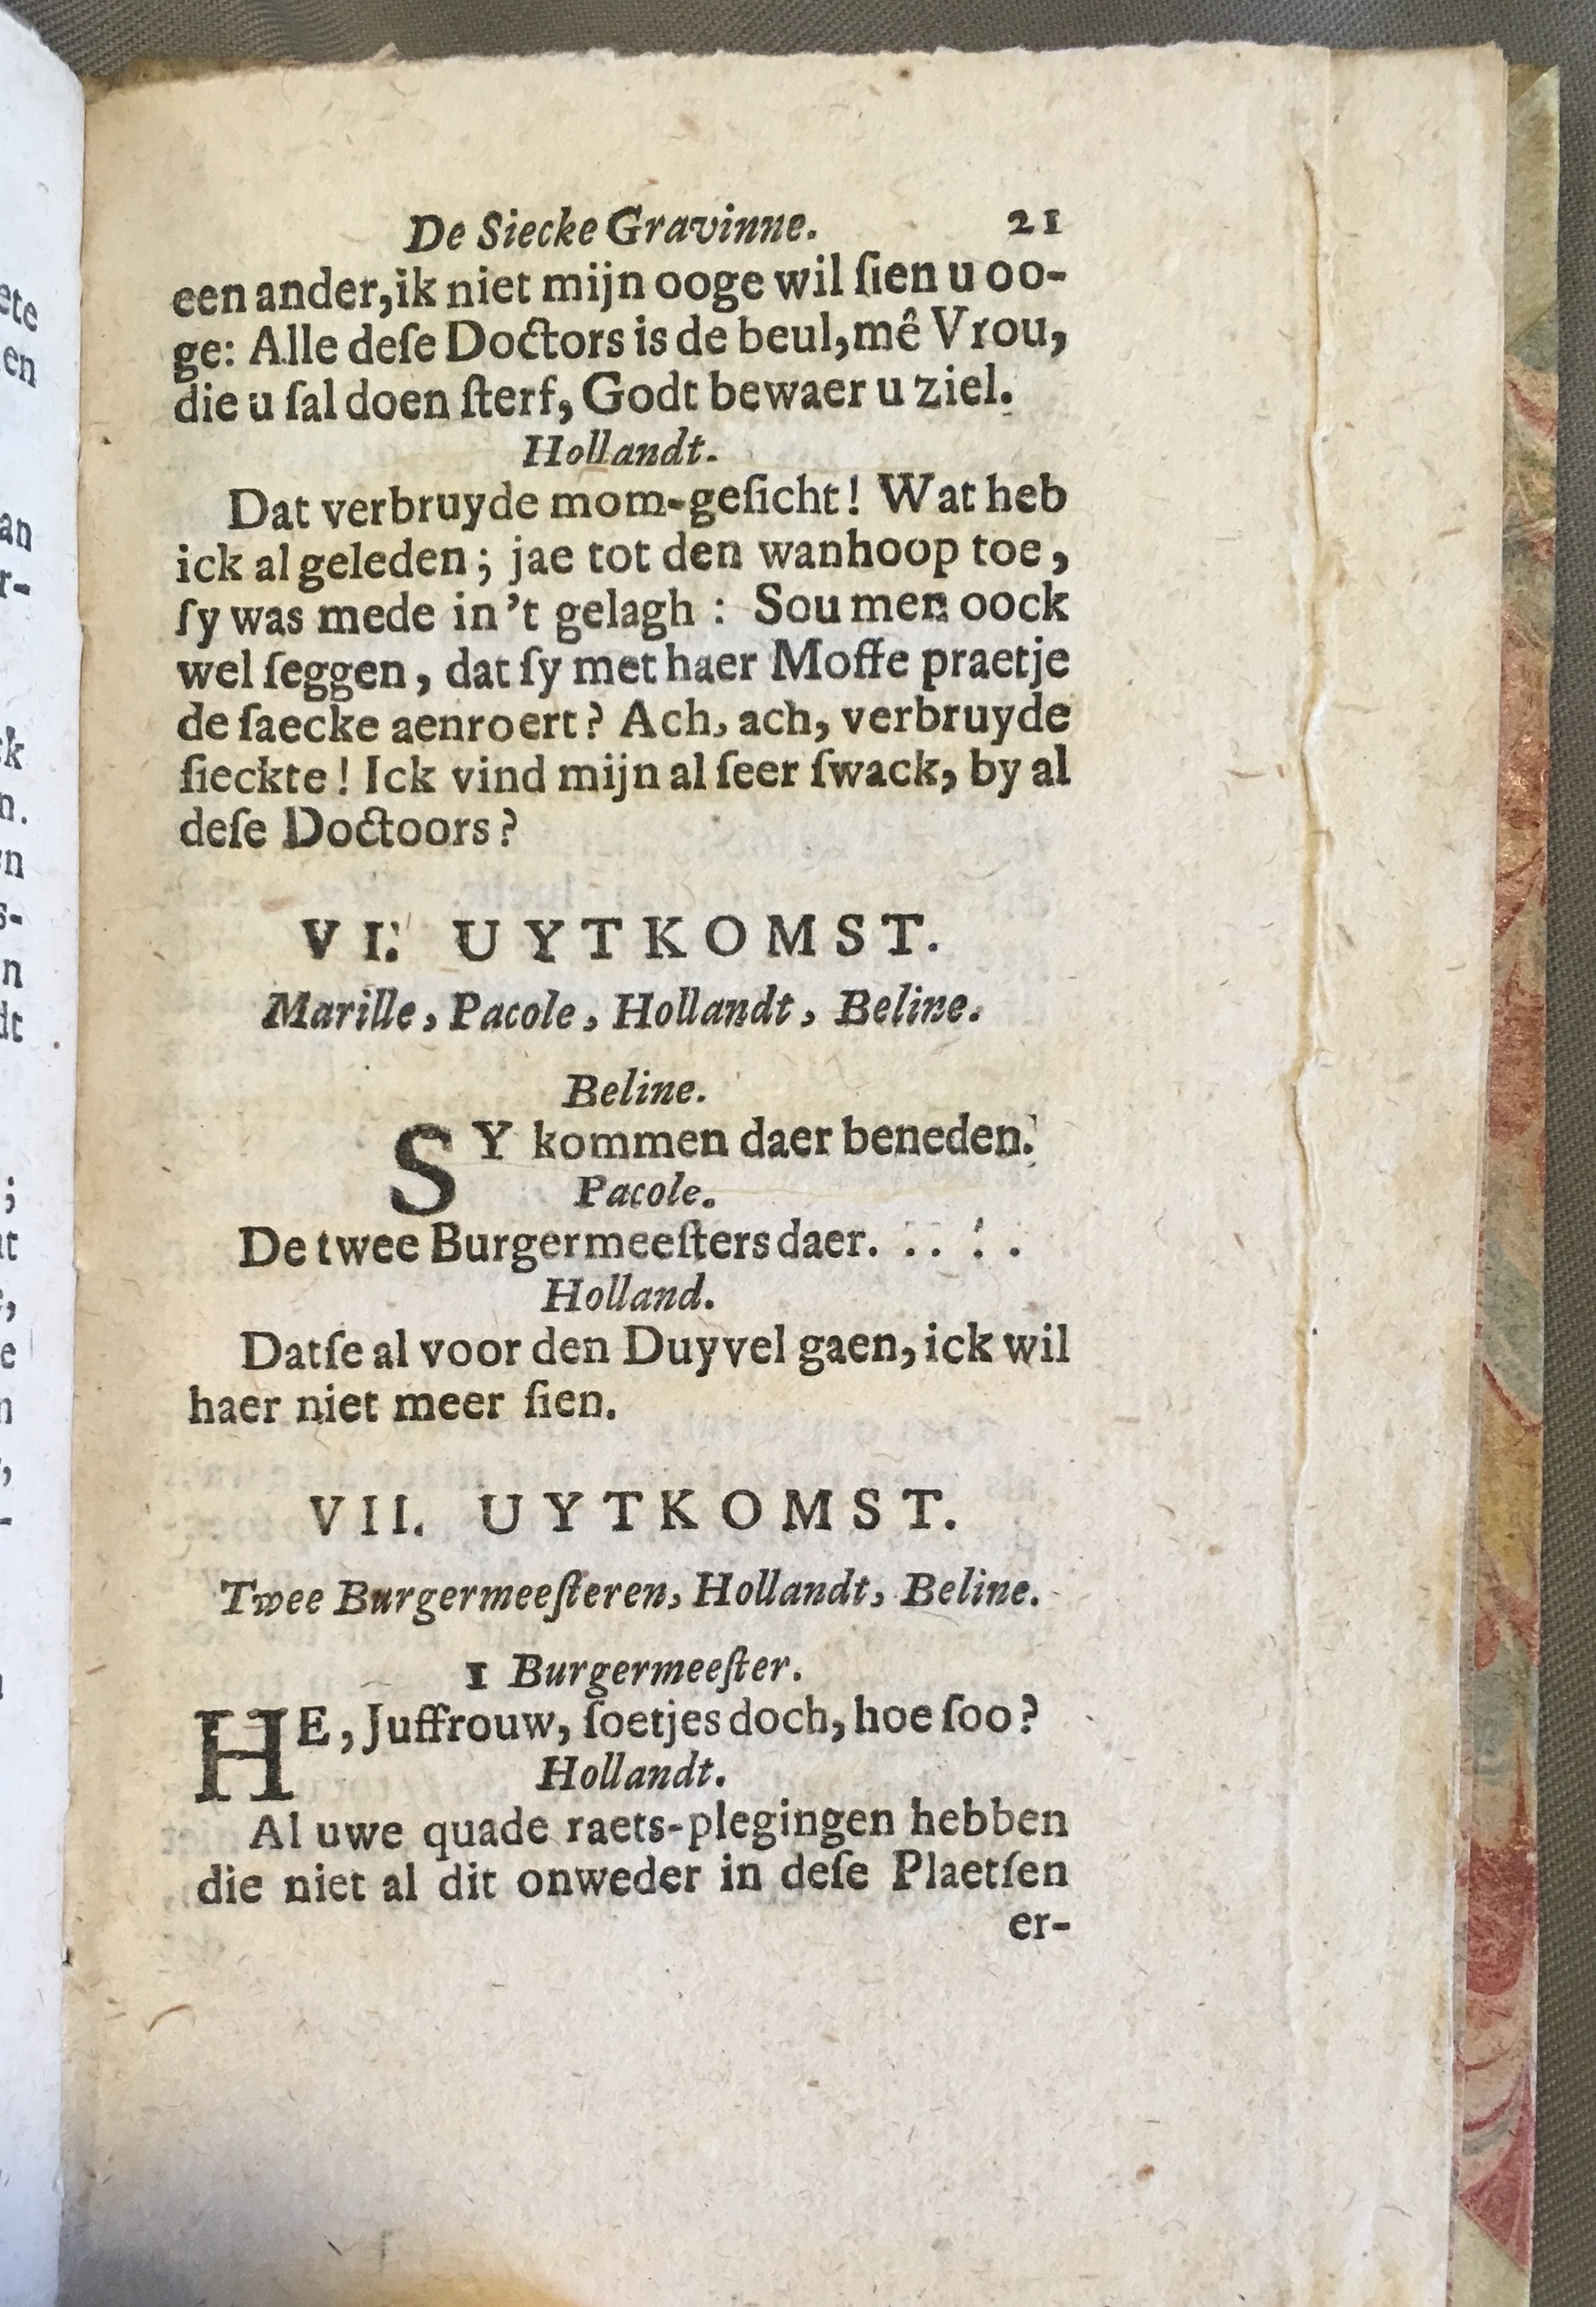 De Siecke Gravinne. 21
een ander, ik niet mijn ooge wil ſien u oo-
ge: Alle deſe Doctors is de beul, mê Vrou,
die u ſal doen ſterf, Godt bewaer u ziel.
Hollandt.
Dat verbruyde mom-geſicht! Wat heb
ick al geleden; jae tot den wanhoop toe,
ſy was mede in 't gelagh : Sou men oock
wel ſeggen, dat ſy met haer Moffe praetje
de ſaecke aenroert? Ach, ach, verbruyde
ſieckte! Ick vind mijn al ſeer ſwack, by al
deſe Doctoors?
VI. UYTKOMST.
Marille, Pacole, Hollandt, Beline.
Beline.
SY kommen daer beneden.
Pacole.
De twee Burgermeeſters daer. . . . .
Holland.
Datſe al voor den Duyvel gaen, ick wil
haer niet meer ſien.
VII. UYTKOMST.
Twee Burgermeeſteren, Hollandt, Beline.
1 Burgermeeſter.
HE, Juffrouw, ſoetjes doch, hoe ſoo?
Hollandt.
Al uwe quade raets-plegingen hebben
die niet al dit onweder in deſe Plaetſen
er-